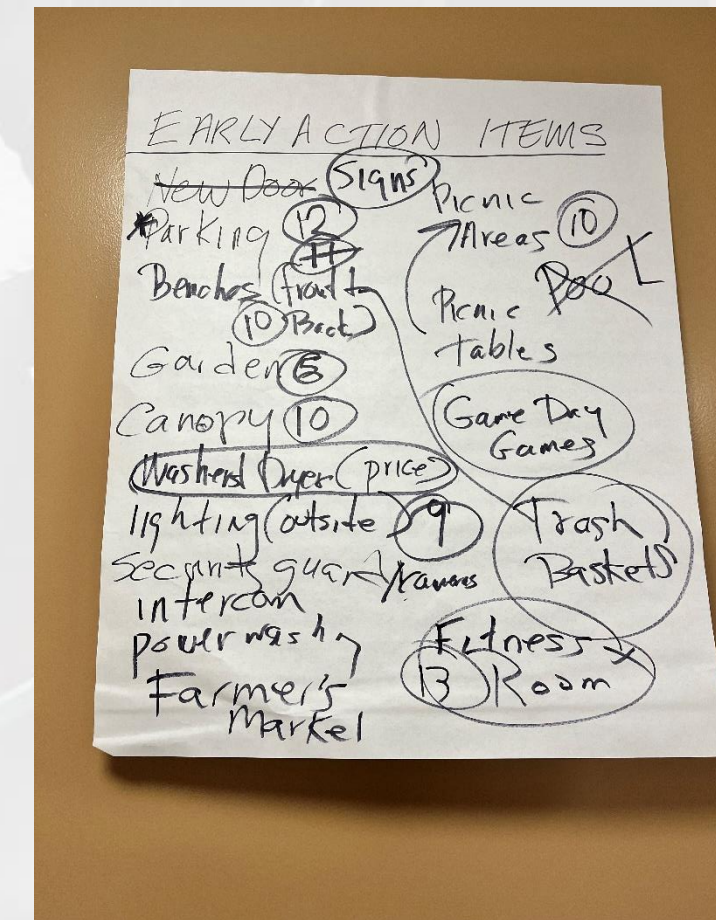 EARLY ACTION ITEMS
New Door Signs
*Parking 12
11
Benches (front to
10 Back)
Garden 6
Canopy 10
Washers Dryer (price)
lighting (outsite) 9
Security guard/cameras
intercom
power wash
Farmer's
Market
Picnic
Areas 10
Pool
Picnic
tables
Game Day
Games
Trash
Baskets
Fitness
13 Room